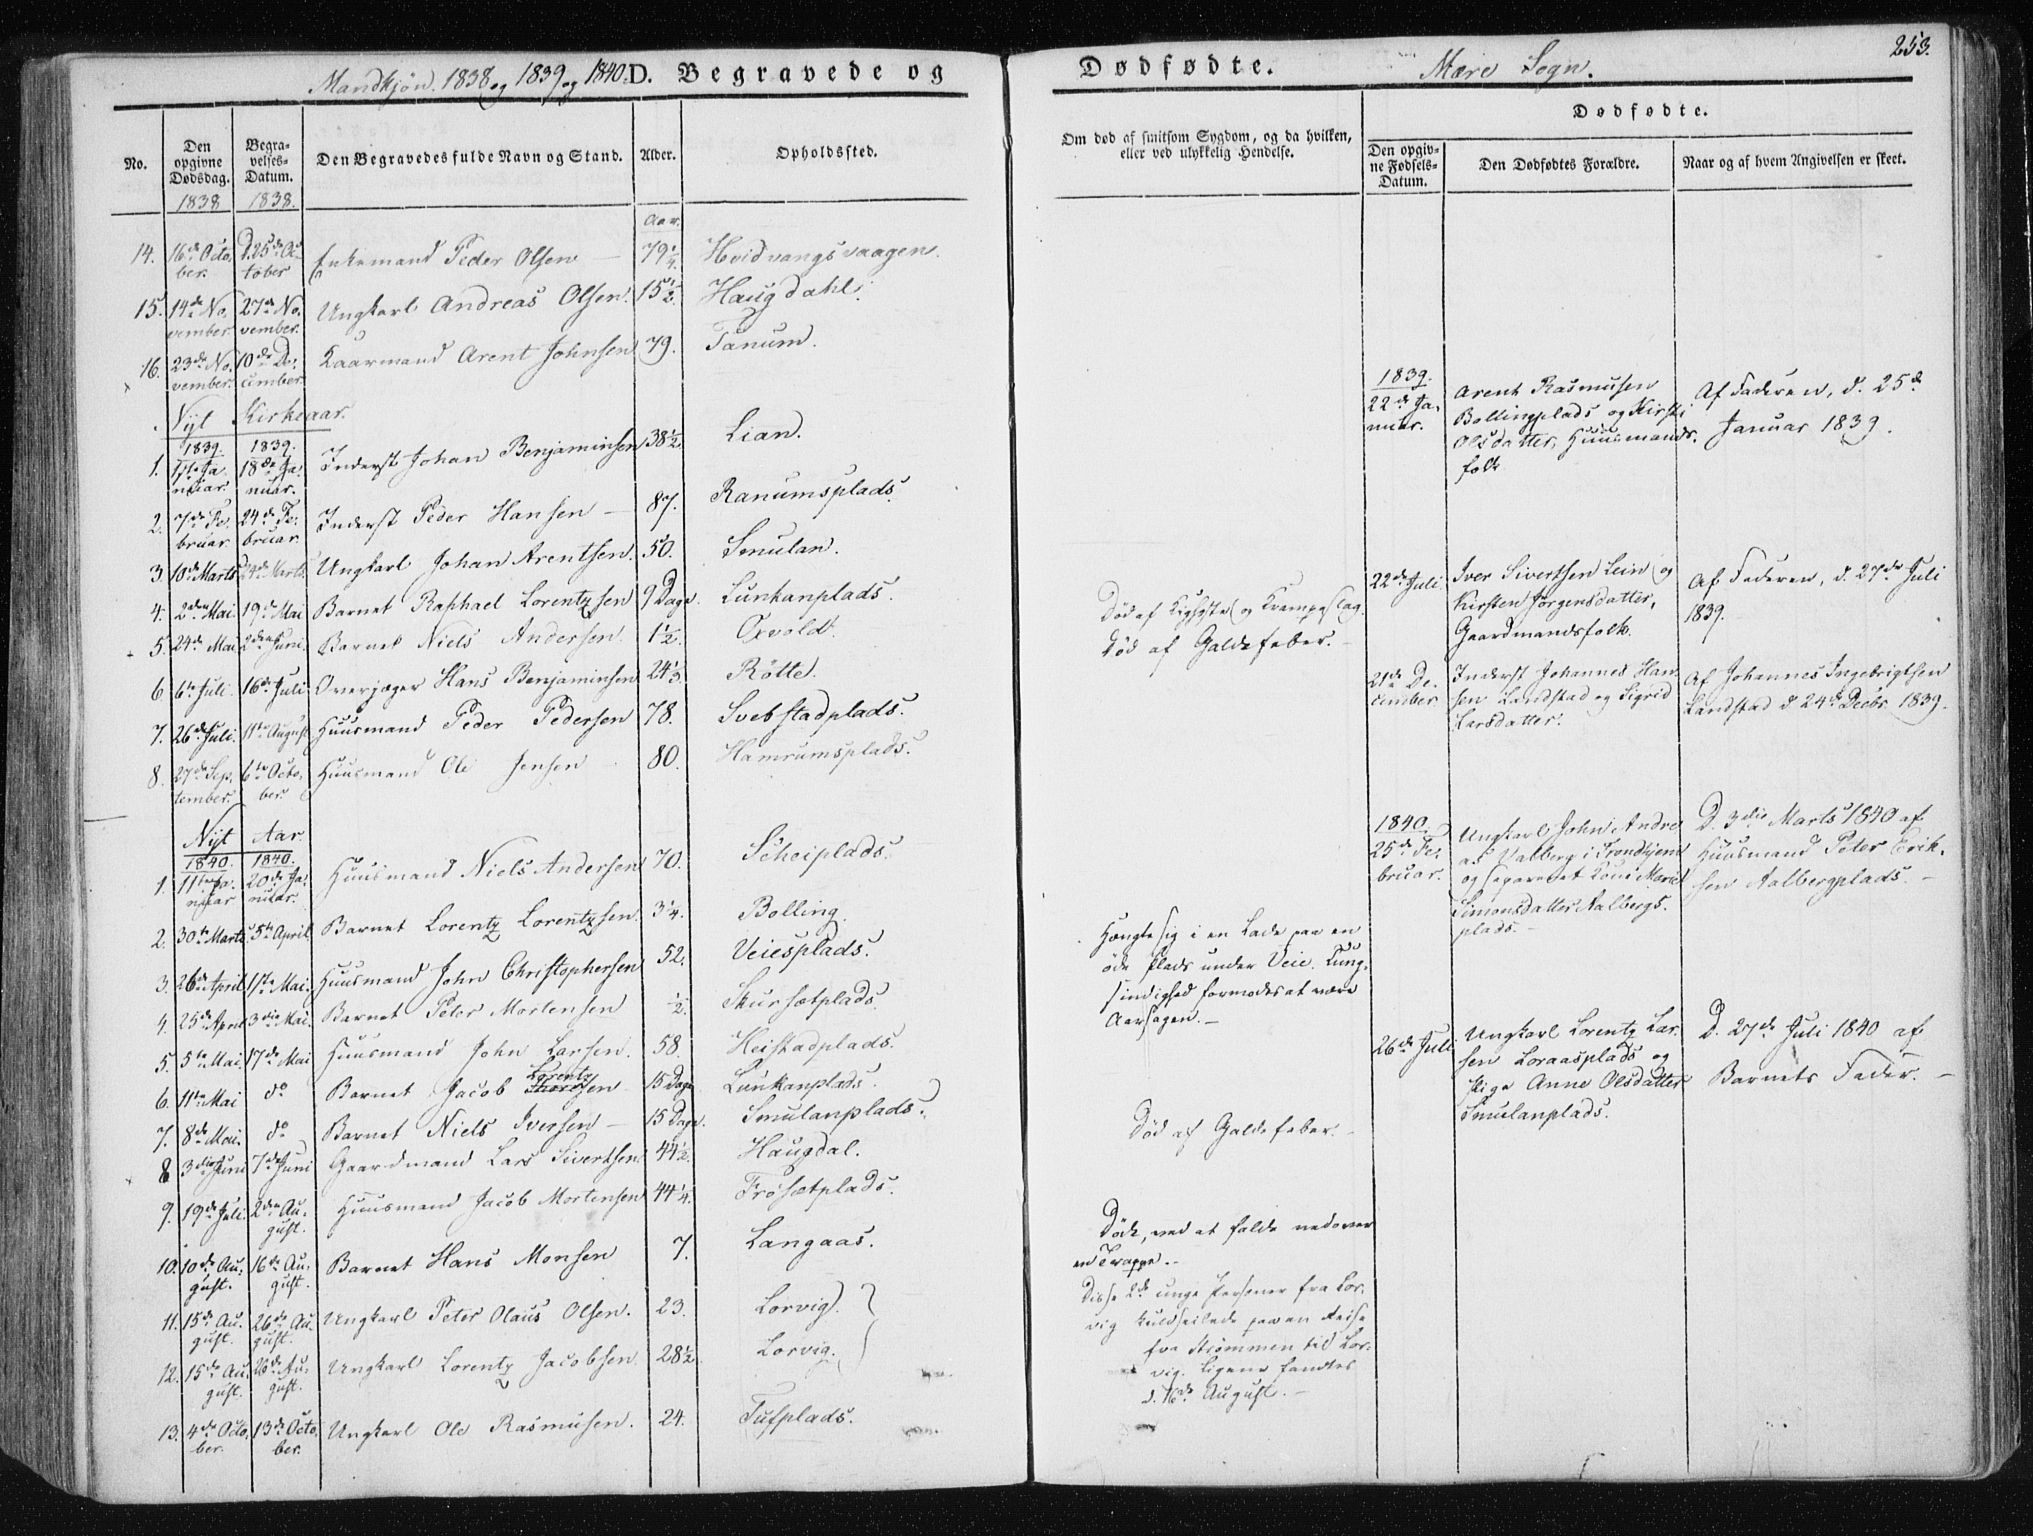 Mandkjøn. 1838 og 1839 og 1840. D. Begravede og
Dødfødte. Mære Sogn. 253.
No.
Den opgivne Dødsdag.
Begravelses-Datum.
Den Begravedes fulde Navn og Stand.
Alder.
Opholdssted.
Om død af smitsom Sygdom, og da hvilken,
eller ved ulykkelig Hendelse.
Dødfødte.
Den opgivne Fødsels-Datum.
Den Dødfødtes Forældre.
Naar og af hvem Angivelsen er skeet.
1838 1838.
Aar.
14. 16de October. D. 25de October Enkemand Peder Olsen — 79 1/4. Hvidvangsvaagen.
15. 14de November 27de November. Ungkarl Andreas Olsen. 15 1/2. Haugdahl.
16. 23de November. 10de December. Kaarmand Arent Johnsen 79. Tanum.
Nyt Kirkeaar.
1839. 1839.
1. Januar. 18de Januar. Inderst Johan Benjaminsen 38 1/2. Lian.
2. 7de Februar. 24de Februar. Inderst Peder Hansen — 87. Ranumsplads.
3. 10de Marts 24de Marts. Ungkarl Johan Arentsen. 50. Smulan.
4. 2den Mai. 19de Mai Barnet Raphael Lorentzsen 9 Dage. Lunkanplads.
5. 24de Mai 2den Juni. Barnet Niels Andersen. 1 1/2. Oxvold.
6. 6te Juli. 16de Juli. Overjæger Hans Benjaminsen 24 1/3. Røtte.
7. 26de Juli. 11te August Huusmand Peder Pedersen 78. Svebstadplads.
8. 27de September. 6te October. Huusmand Ole Jensen 80. Hamrumsplads.
Nyt Aar.
1840. 1840.
1. 11te Januar 20de Januar. Huusmand Niels Andersen 70. Scheiplads.
2. 30te Marts. 5te April. Barnet Lorentz Lorentzsen. 3 1/4. Bolling.
3. 26de April 17te Mai. Huusmand John Christophersen 52. Veiesplads.
4. 25de April 3die Mai. Barnet Peter Mortensen 1/2. Skursætplads.
5. 5te Mai 17de Mai Huusmand John Larsen. 58. Heistadplads.
6. 11te Mai do Barnet Jacob Lorentzsen 15 Dage Lunkanplads.
7. 8de Mai. do Barnet Niels Iversen — 15 Dage. Smulanplads.
8 3die Juni 7de Juni Gaardmand Lars Sivertsen 44 1/2. Haugdal.
9. 19de Juli 2den August. Huusmand Jacob Mortensen 44 1/4. Frøsætplads.
10. 10de August. 16de August. Barnet Hans Monsen 7. Langaas.
11. 15de August. 26de August. Ungkarl Peter Olaus Olsen. 23. Lorvig.
12. 15de August. 26de August. Ungkarl Lorentz Jacobsen 28 1/2. Lorvig.
13. 4de October. 13de October. Ungkarl Ole Rasmusen. 24. Tufplads.
Død af Kighoste og Krampeslag.
Død af Galdefeber. —
Hængte sig i en Lade paa en
øde Plads under Veie. Tung-
sindighed formodes at være
Aarsagen. —
Død af Galdefeber. —
Døde, ved at falde nedover
en Trappe. —
Disse 2de unge Personer fra Lor-
vig kuldseilede paa en Reise
fra Strømmen til Lor-
vig. Ligene fandtes
d. 16de August. —
1839.
22de Januar.
Arent Rasmusen
Bollingplads og Kirsti
Olsdatter, Huusmands-
folk
Af Faderen, d. 25de
Januar 1839.
22de Juli
Iver Sivertsen Lein og
Kirsten Jørgensdatter,
Gaardmandsfolk.
Af Faderen, d. 27de Juli
1839.
21de December
Inderst Johannes Han-
sen Landstad og Sigrid
Larsdatter.
Af Johannes Ingebrigtsen
Landstad d 24de Decbr 1839.
1840.
25de Februar.
Ungkarl John Andre-
as Valberg i Trondhjem
og separeret Kone Marie
Simonsdatter Aalbergs-
plads. —
D. 3die Marts 1840 af
Huusmand Peter Erik-
sen Aalbergplads. —
26de Juli
Ungkarl Lorentz Lar-
sen Loraasplads og
Pige Anne Olsdatter
Smulanplads.
D. 27de Juli 1840 af
Barnets Fader. —